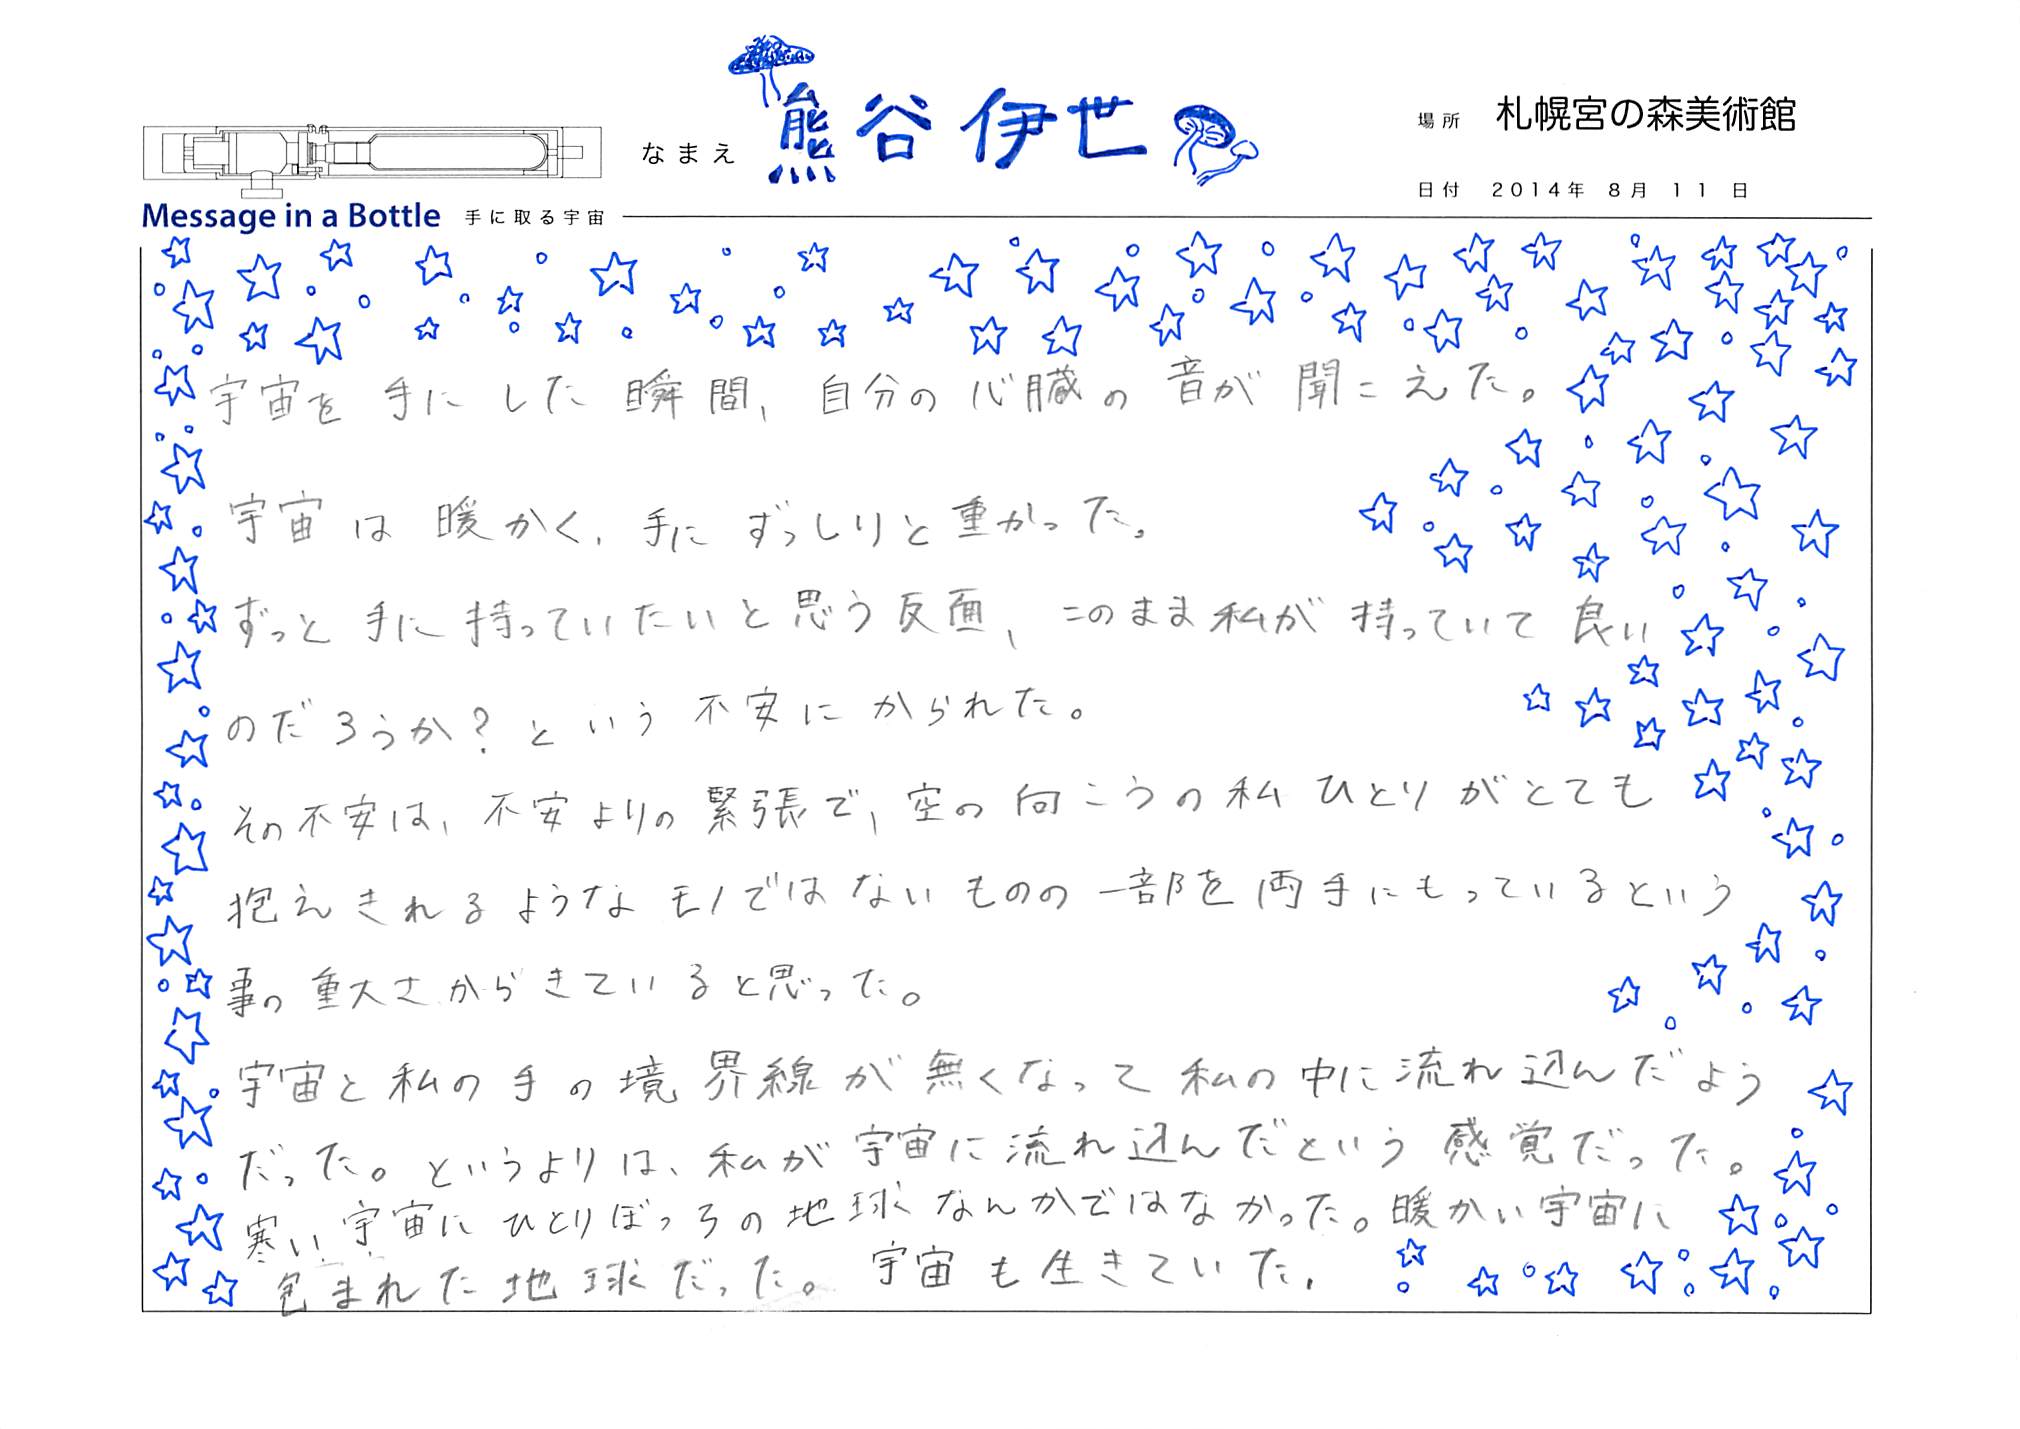 なまえ 熊谷伊世
場所 札幌宮の森美術館
日付 2014年 8月 11日
Message in a Bottle 手に取る宇宙
宇宙を手にした瞬間、自分の心臓の音が聞こえた。
宇宙は暖かく、手にずっしりと重かった。
ずっと手に持っていたいと思う反面、このまま私が持っていて良い
のだろうか？という不安にかられた。
その不安は、不安よりの緊張で、空の向こうの私ひとりがとても
抱えきれるようなモノではないものの一部を両手にもっているという
事の重大さからきていると思った。
宇宙と私の手の境界線が無くなって私の中に流れ込んだよう
だった。というよりは、私が宇宙に流れ込んだという感覚だった。
寒い宇宙にひとりぼっちの地球なんかではなかった。暖かい宇宙に
包まれた地球だった。宇宙も生きていた。